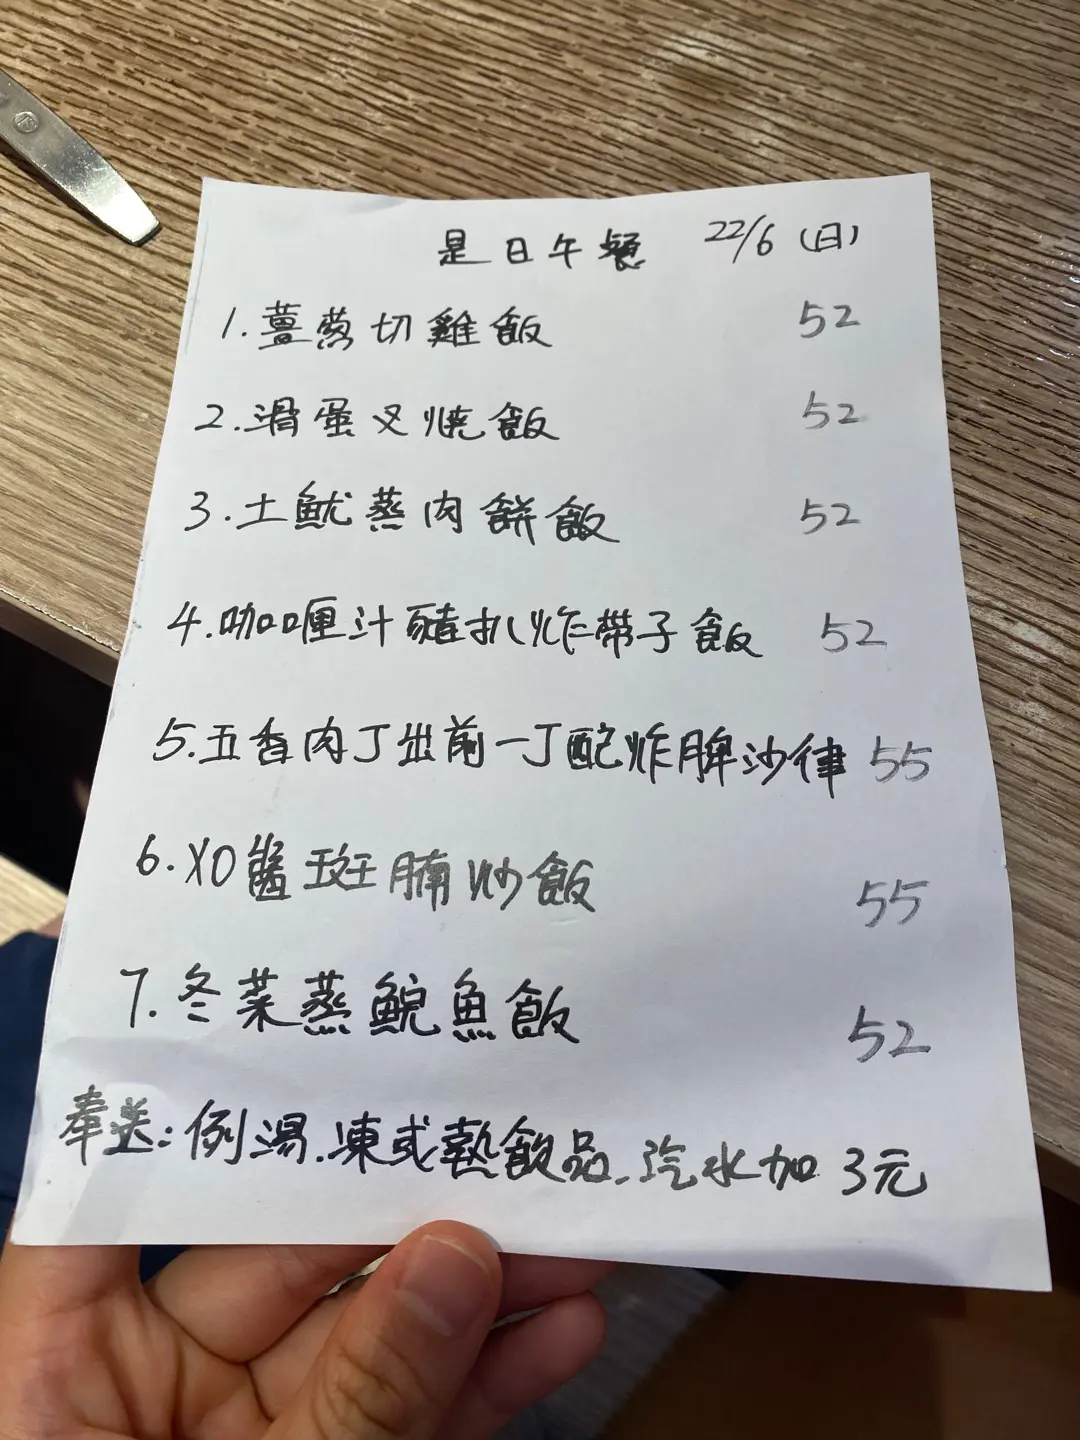 是日午餐 22/6 (日)
1.薑葱切雞飯 52
2.滑蛋叉燒飯 52
3.土魷蒸肉餅飯 52
4.咖喱汁豬扒炸帶子飯 52
5.五香肉丁出前一丁配炸脾沙律 55
6.XO醬斑腩炒飯 55
7.冬菜蒸鯇魚飯 52
奉送:例湯.凍或熱飲品.汽水加3元